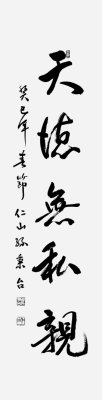 天德無私親
癸巳年春節仁山孫秉台